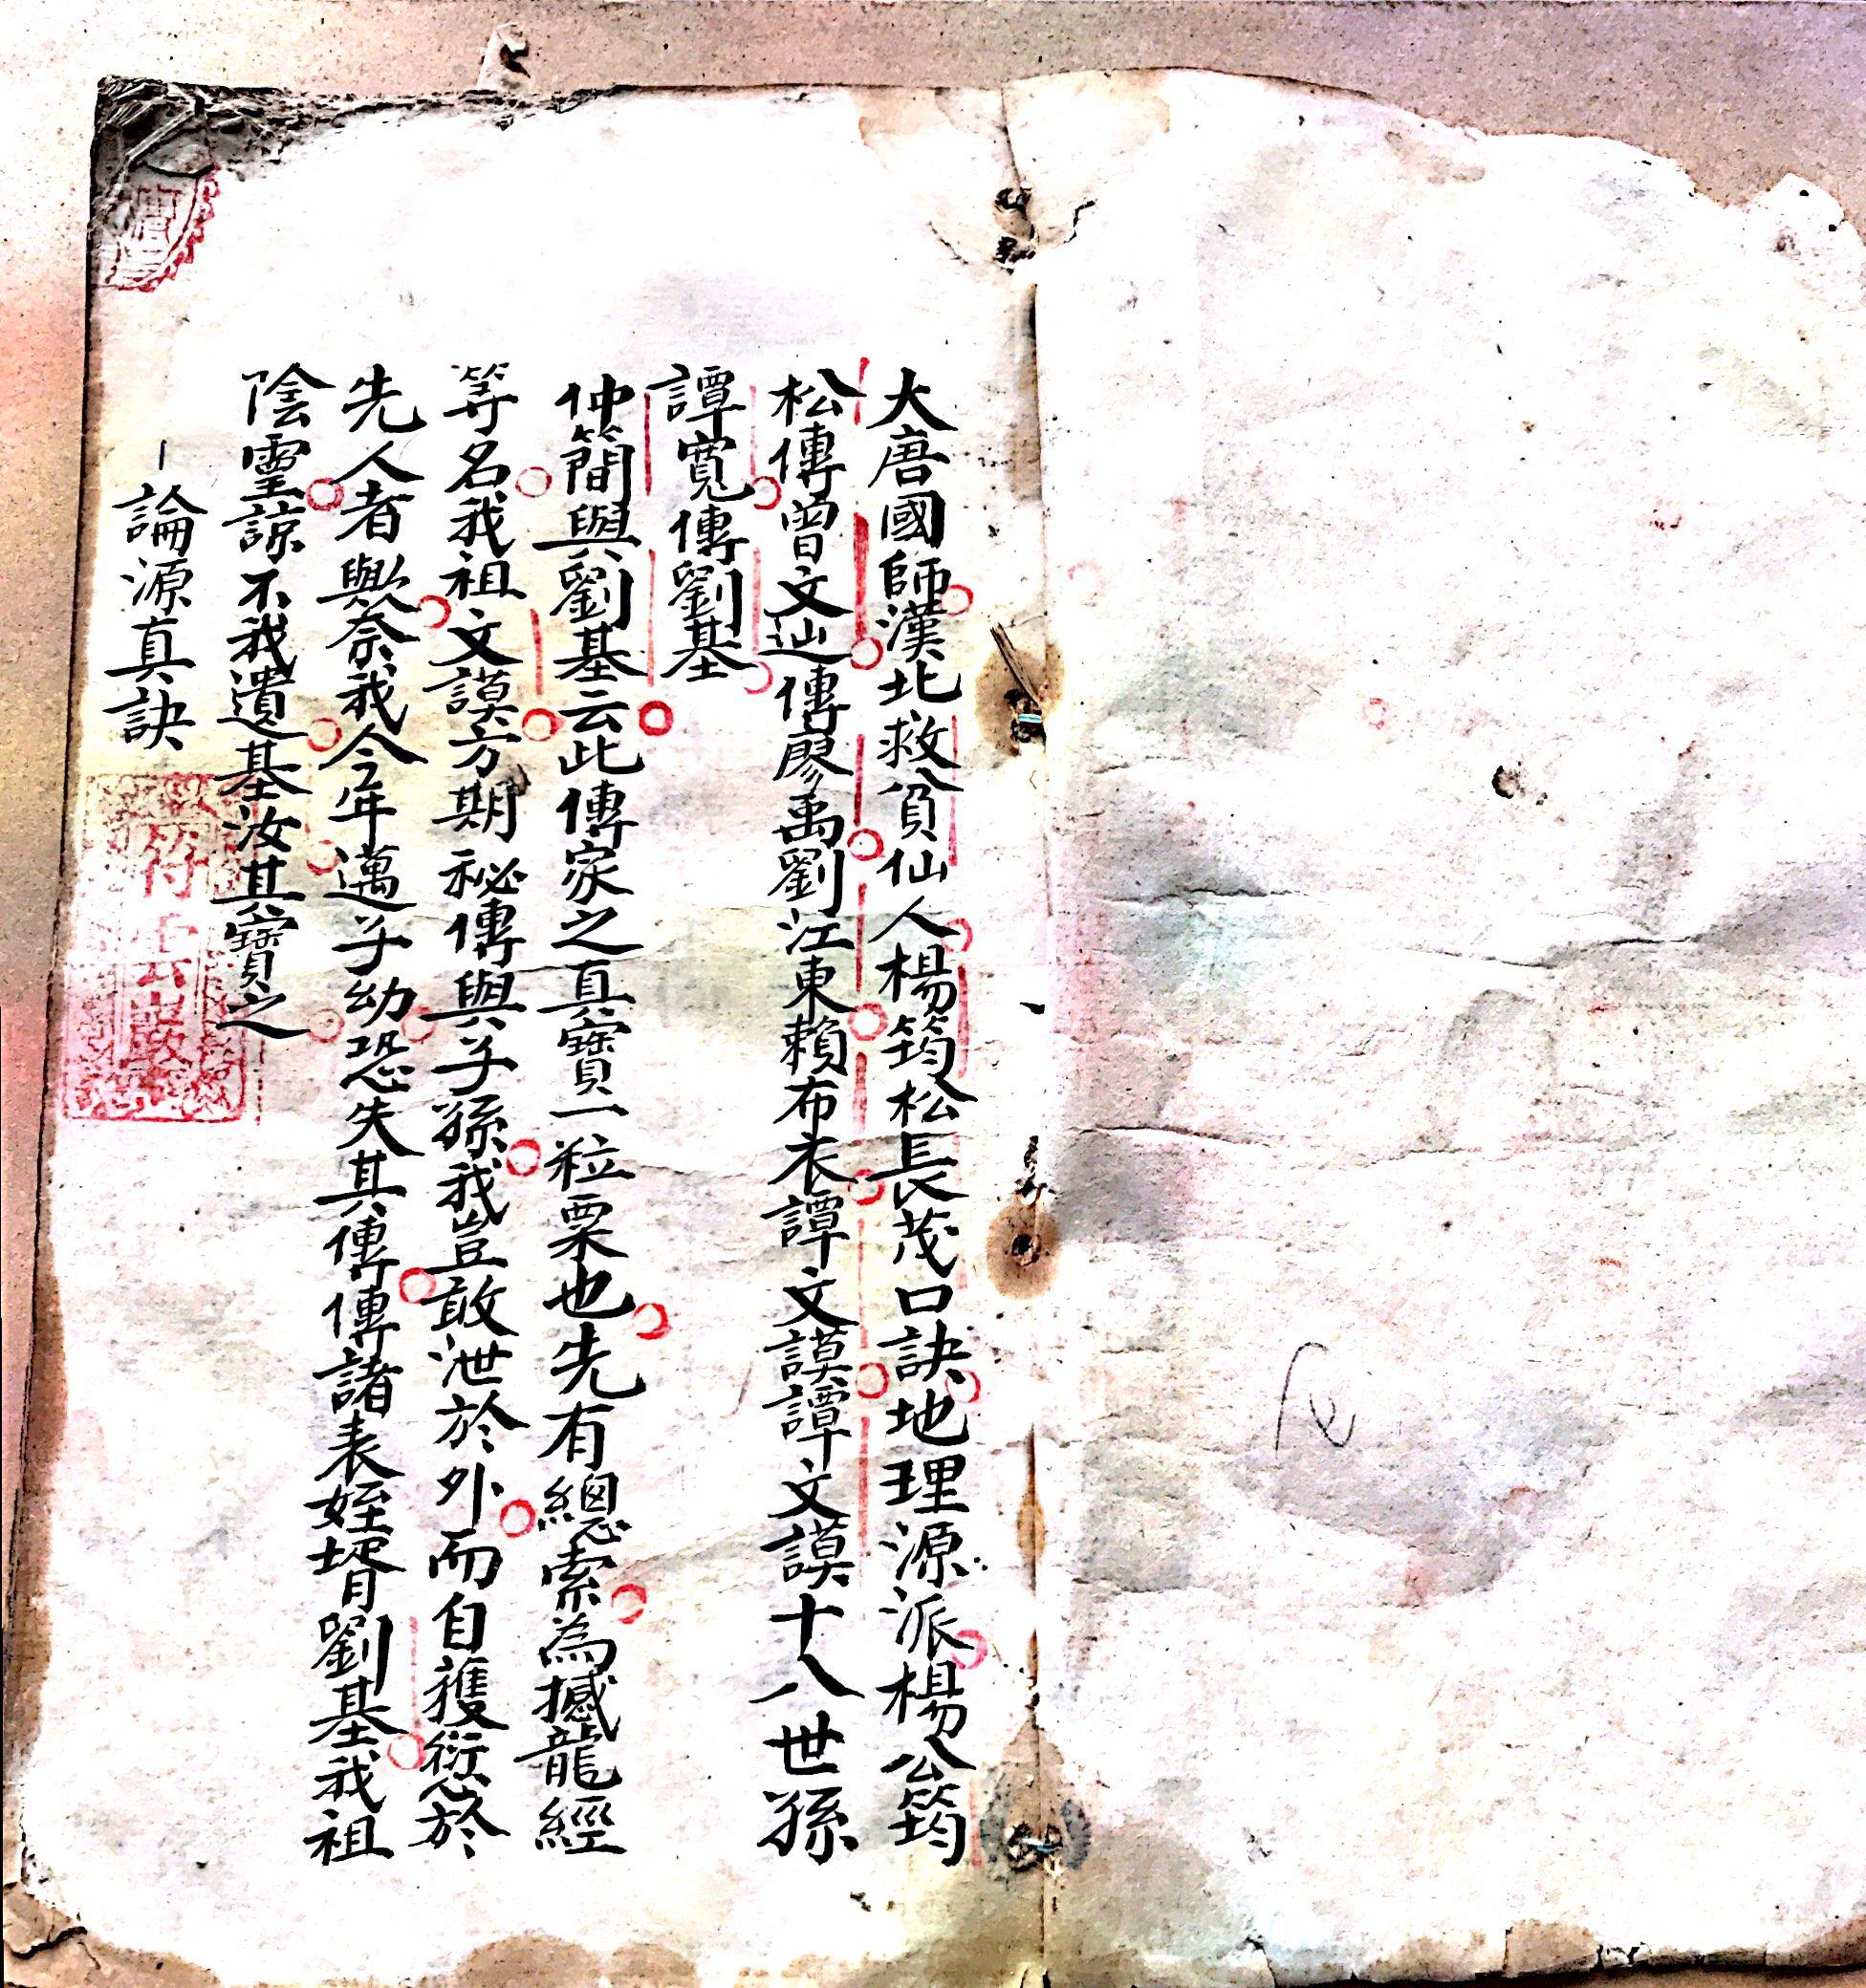 大唐國師漢北救貧仙人楊筠松長茂口訣地理源派楊公筠
松傳曾文辿傳廖禹劉江東賴布衣譚文謨譚文謨十八世孫
譚寬傳劉基
仲簡與劉基云此傳家之真寶一粒粟也先有總索為撼龍經
等名我祖文謨方期秘傳與子孫我豈敢泄於外而自獲愆於
先人者歟奈我今年邁子幼恐失其傳傳諸表姪壻劉基我祖
陰靈諒不我遺基汝其寶之
論源真訣
符雲嵗